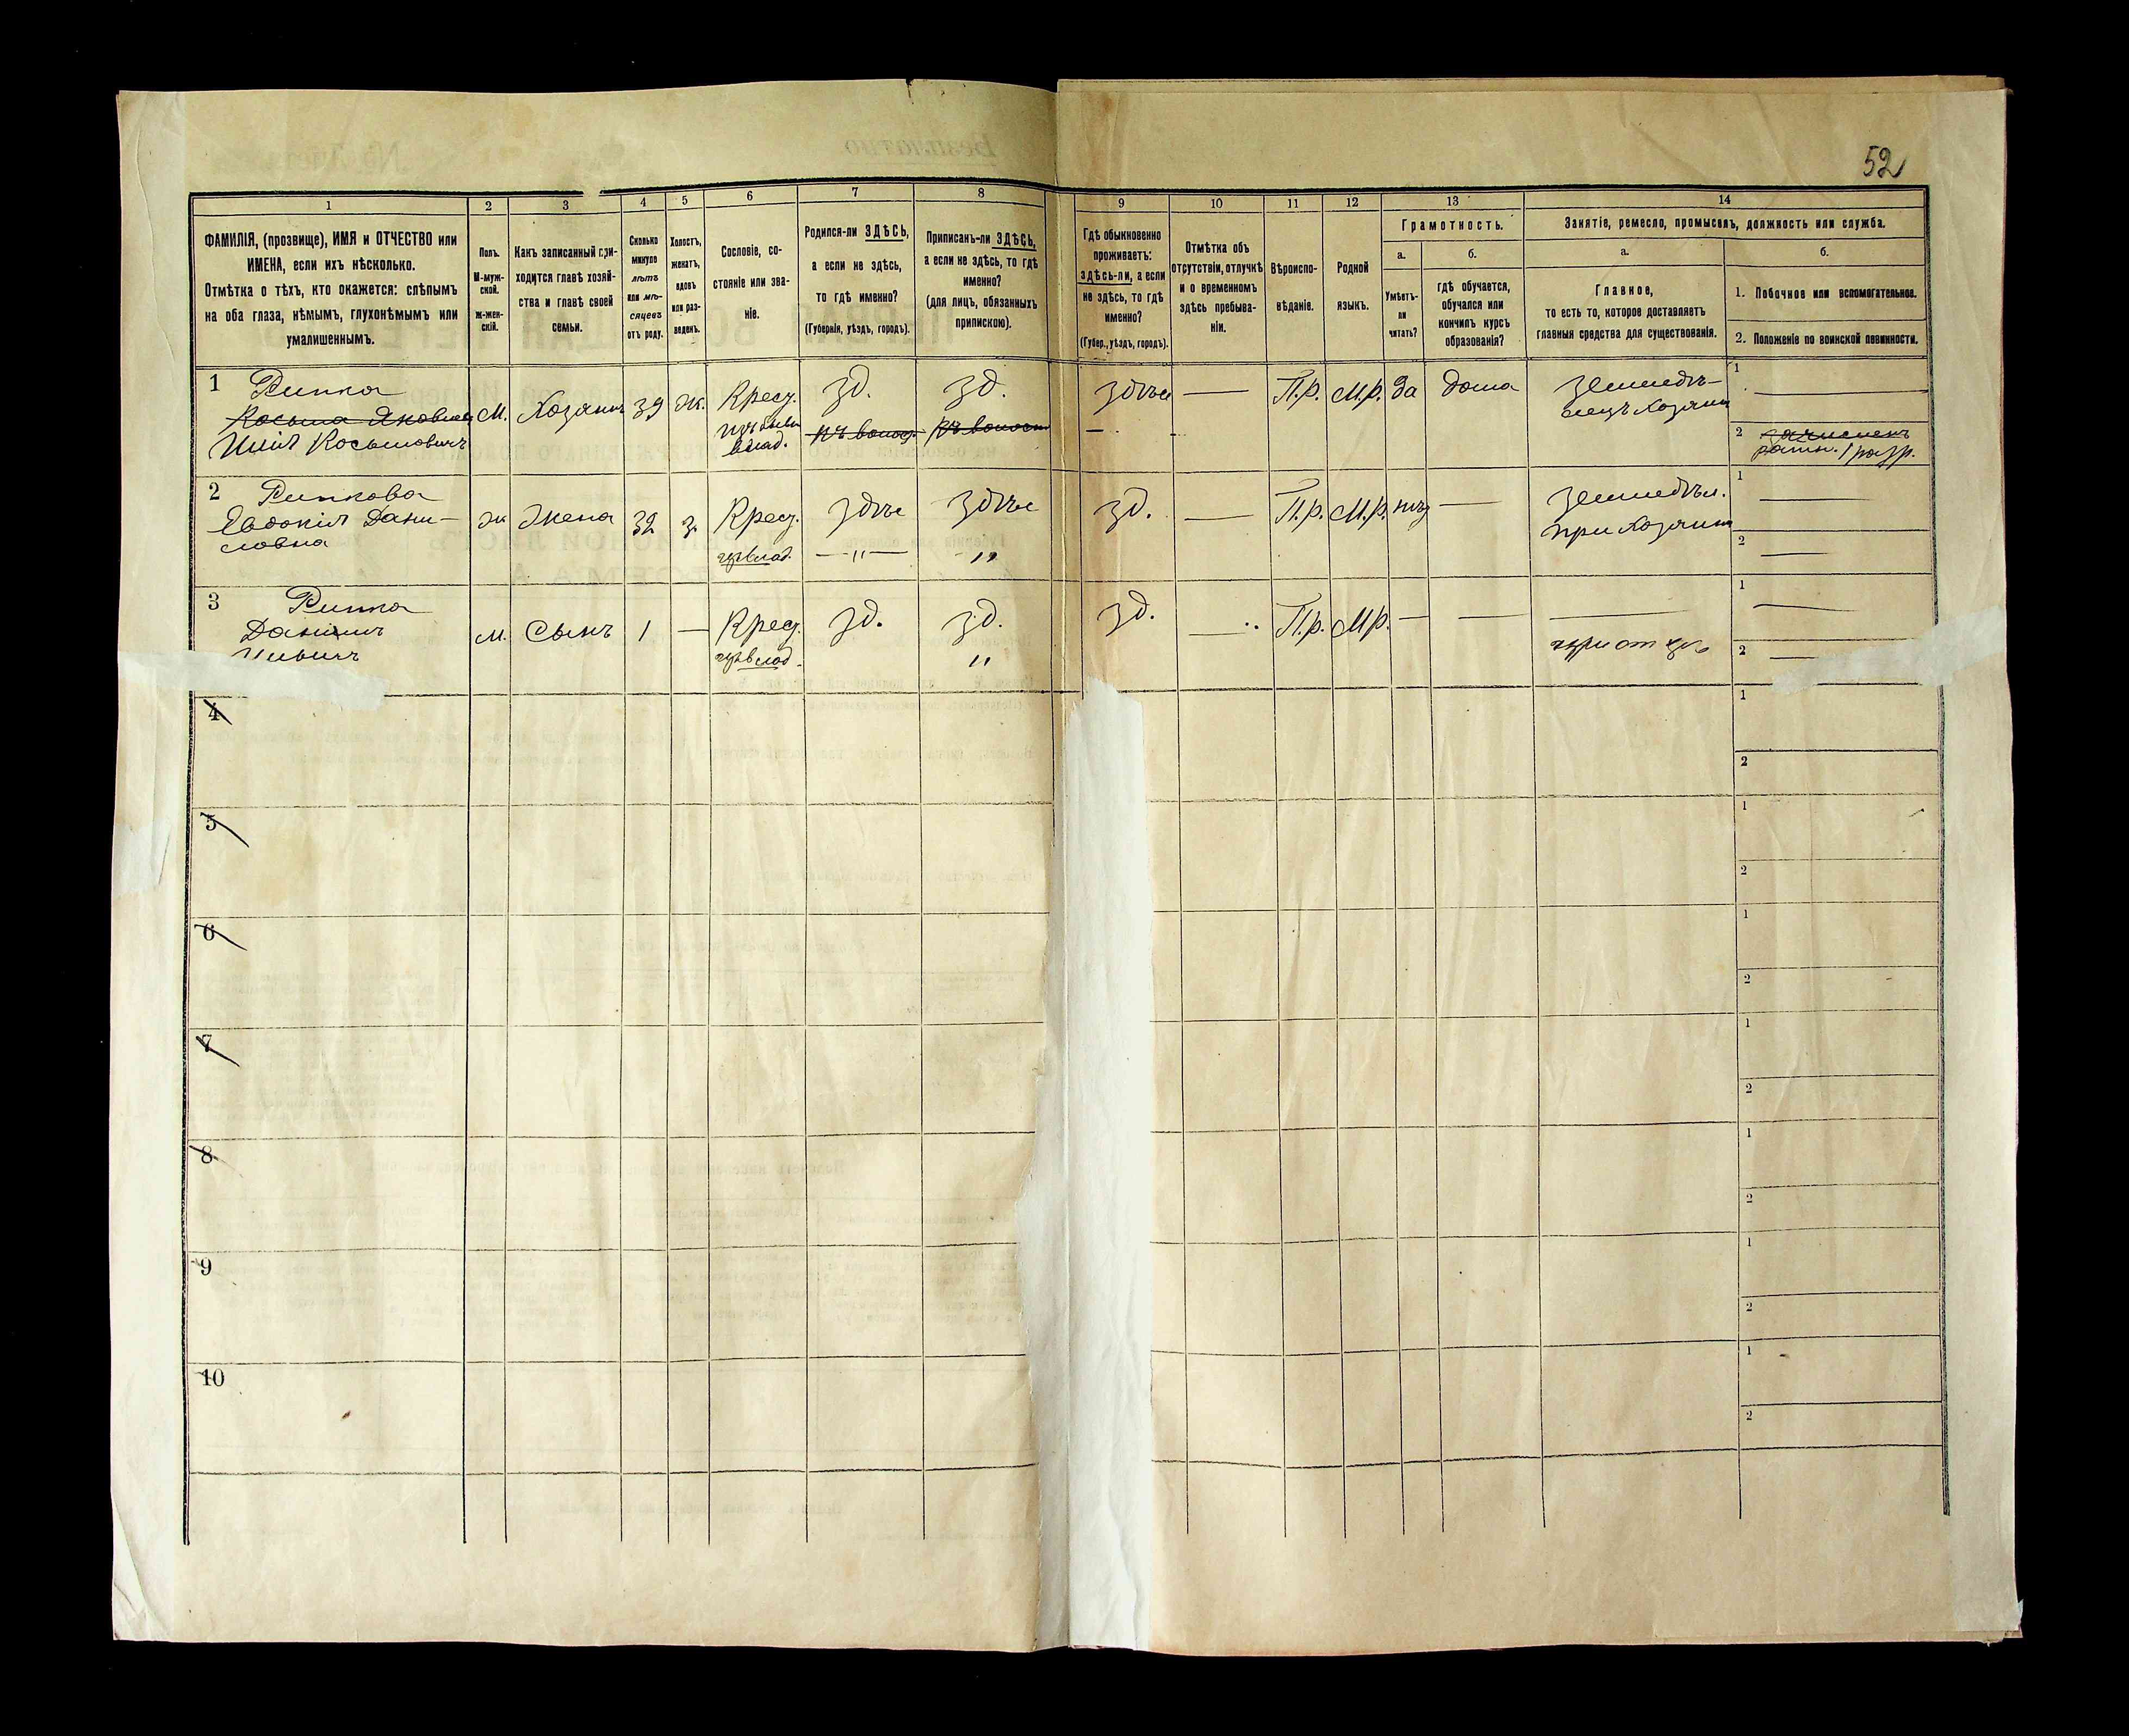 52
1
2
3
4
5
6
7
8
9
10
11
12
13
14
ФАМИЛІЯ, (прозвище), ИМЯ и ОТЧЕСТВО или
ИМЕНА, если ихъ нѣсколько.
Отмѣтка о тѣхъ, кто окажется: слѣпымъ
на оба глаза, нѣмымъ, глухонѣмымъ или
умалишеннымъ.
Полъ.
М-муж-
ской.
Ж-жен-
скій.
Какъ записанный при-
ходится главѣ хозяй-
ства и главѣ своей
семьи.
Сколько
минуло
лѣтъ
или мѣ-
сяцевъ
отъ роду.
Холостъ,
женатъ,
вдовъ
или раз-
веденъ.
Сословіе, со-
стояніе или зва-
ніе.
Родился-ли ЗДѢСЬ,
а если не здѣсь,
то гдѣ именно?
(Губернія, уѣздъ, городъ).
Приписанъ-ли ЗДѢСЬ,
а если не здѣсь, то гдѣ
именно?
(для лицъ, обязанныхъ
припискою).
Гдѣ обыкновенно
проживаетъ:
здѣсь-ли, а если
не здѣсь, то гдѣ
именно?
(Губер., уѣздъ, городъ).
Отмѣтка объ
отсутствіи, отлучкѣ
и о временномъ
здѣсь пребыва-
ніи.
Вѣроиспо-
вѣданіе.
Родной
языкъ.
Грамотность.
а.
Умѣетъ-
ли
читать?
б.
гдѣ обучается,
обучался или
кончилъ курсъ
образованія?
Занятіе, ремесло, промыселъ, должность или служба.
а.
Главное,
то есть то, которое доставляетъ
главныя средства для существованія.
б.
1. Побочное или вспомогательное.
2. Положеніе по воинской повинности.
1 Рипка
Косьма Яковлев
Илія Косьмовичъ
М.
Хозяинъ
39
Ж.
Крест.
изъ бывш
влад.
Зд.
Зд.
здѣсь
П.р.
М.р.
да
дома
земледѣ-
лецъ хозяинъ
1
2
ратн. 1 разр.
2 Рипкова
Евдокія Дани-
ловна
ж
Жена
32
з.
Крест.
влад.
здѣсь
— " —
здѣсь
"
зд.
П.р.
М.р.
нѣт
земледѣл.
при хозяинѣ
1
2
3 Рипка
Даніилъ
Ильичъ
м.
Сынъ
1
—
Крест.
влад.
зд.
зд.
"
зд.
П.р.
М.р.
при отцѣ
1
2
4
1
2
5
1
2
6
1
2
7
1
2
8
1
2
9
1
2
10
1
2